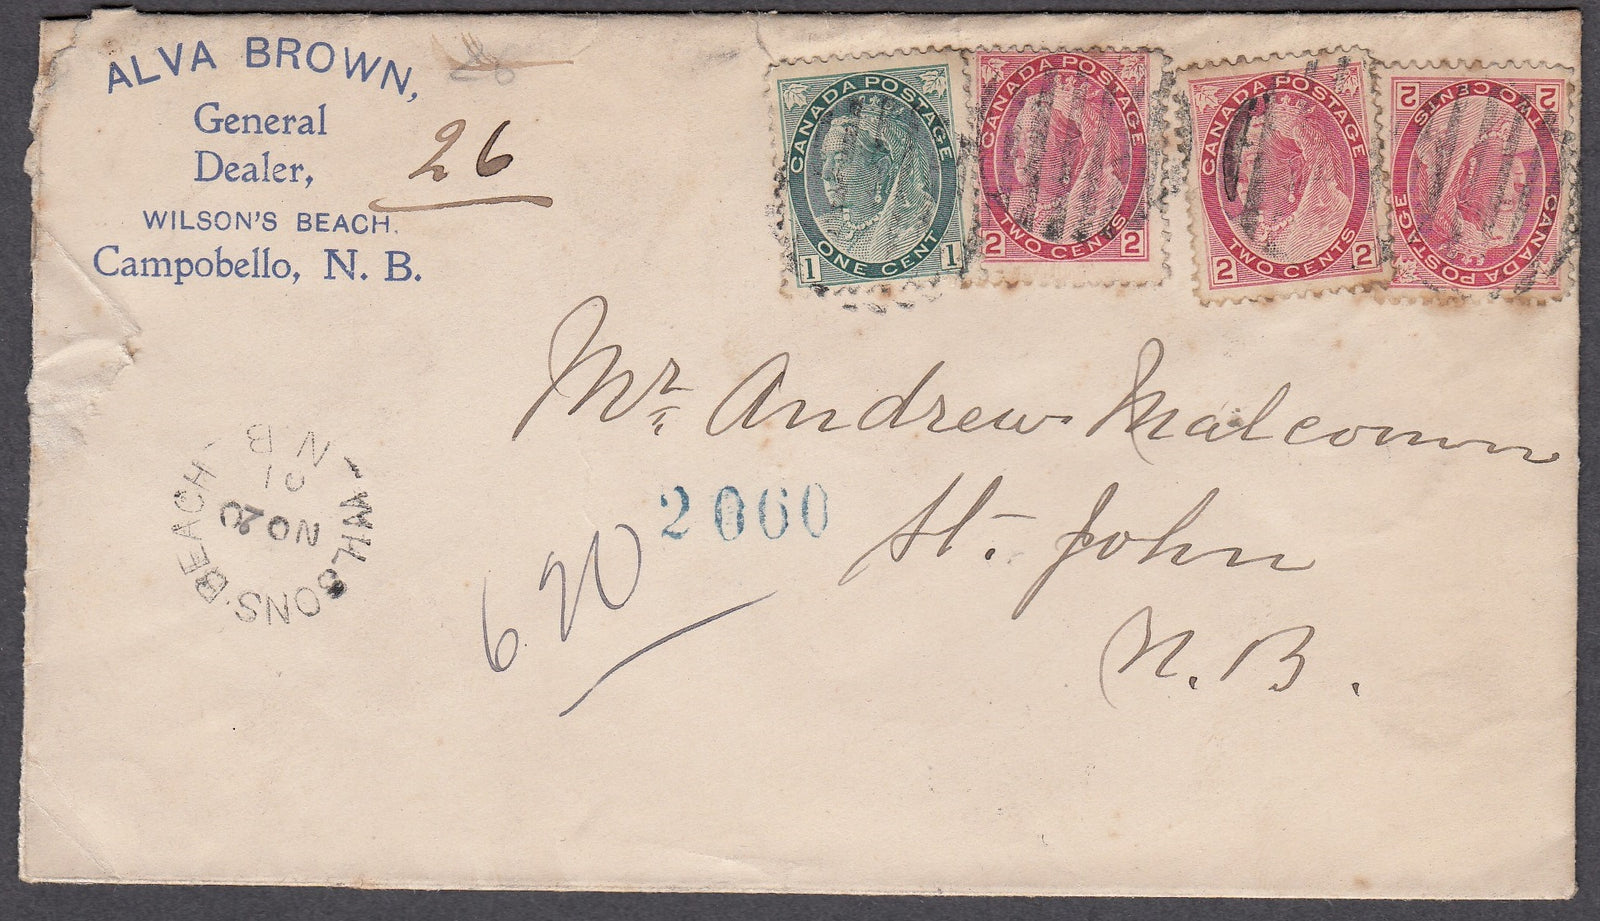 ALVA BROWN,
General
Dealer,
WILSON'S BEACH.
Campobello, N. B.
26
CANADA POSTAGE
ONE CENT
1 1
CANADA POSTAGE
TWO CENTS
2 2
CANADA POSTAGE
TWO CENTS
2 2
CANADA POSTAGE
TWO CENTS
2 2
Mr. Andrew Malcomn
St. John
N. B.
2060
620
WILSONS BEACH
N B
NO 20
01